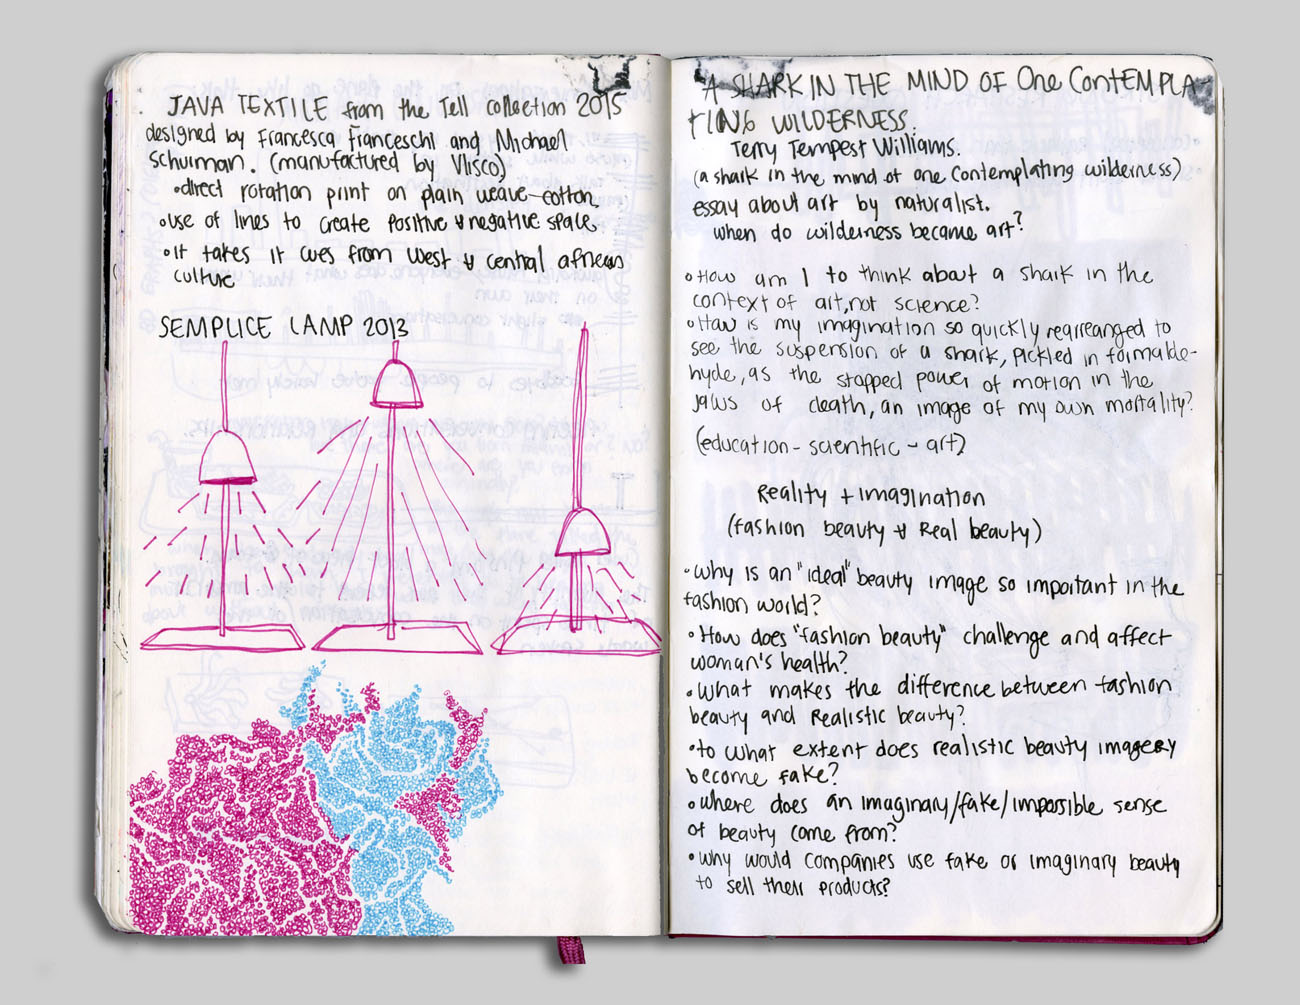 JAVA TEXTILE from the Tell collection 2015
designed by Francesca Franceschi and Michael
Schuiman. (manufactured by Vlisco)
•direct rotation print on plain weave cotton.
•use of lines to create positive & negative space.
•it takes it cues from west & central african
culture
SEMPLICE LAMP 2013
A SHARK IN THE MIND OF One CONTEMPLA
TING WILDERNESS.
Terry Tempest Williams.
(a shark in the mind of one contemplating wilderness)
essay about art by naturalist.
when do wilderness became art?
•How am I to think about a shark in the
context of art, not science?
•How is my imagination so quickly rearreanged to
see the suspension of a shark, pickled in formalde-
hyde, as the stopped power of motion in the
jaws of death, an image of my own mortality?
(education - scientific - art)
Reality + imagination
(fashion beauty & Real beauty)
•why is an "ideal" beauty image so important in the
fashion world?
•How does "fashion beauty" challenge and affect
woman's health?
•what makes the difference between fashion
beauty and Realistic beauty?
•to what extent does realistic beauty imagery
become fake?
•where does an imaginary/fake/impossible sense
of beauty come from?
•why would companies use fake or imaginary beauty
to sell their products?